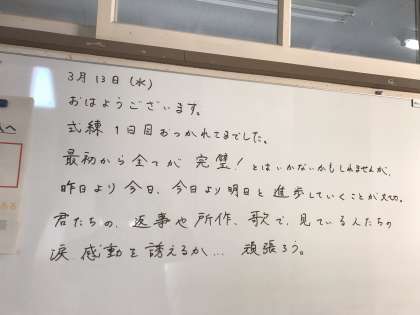 3月13日(水)
おはようございます。
式練1日目おつかれさまでした。
最初から全てが完璧!とはいかないかもしれませんが、
昨日より今日、今日より明日と進歩していくことが大切。
君たちの、返事や所作、歌で、見ている人たちの
涙、感動を誘えるか… 頑張ろう。